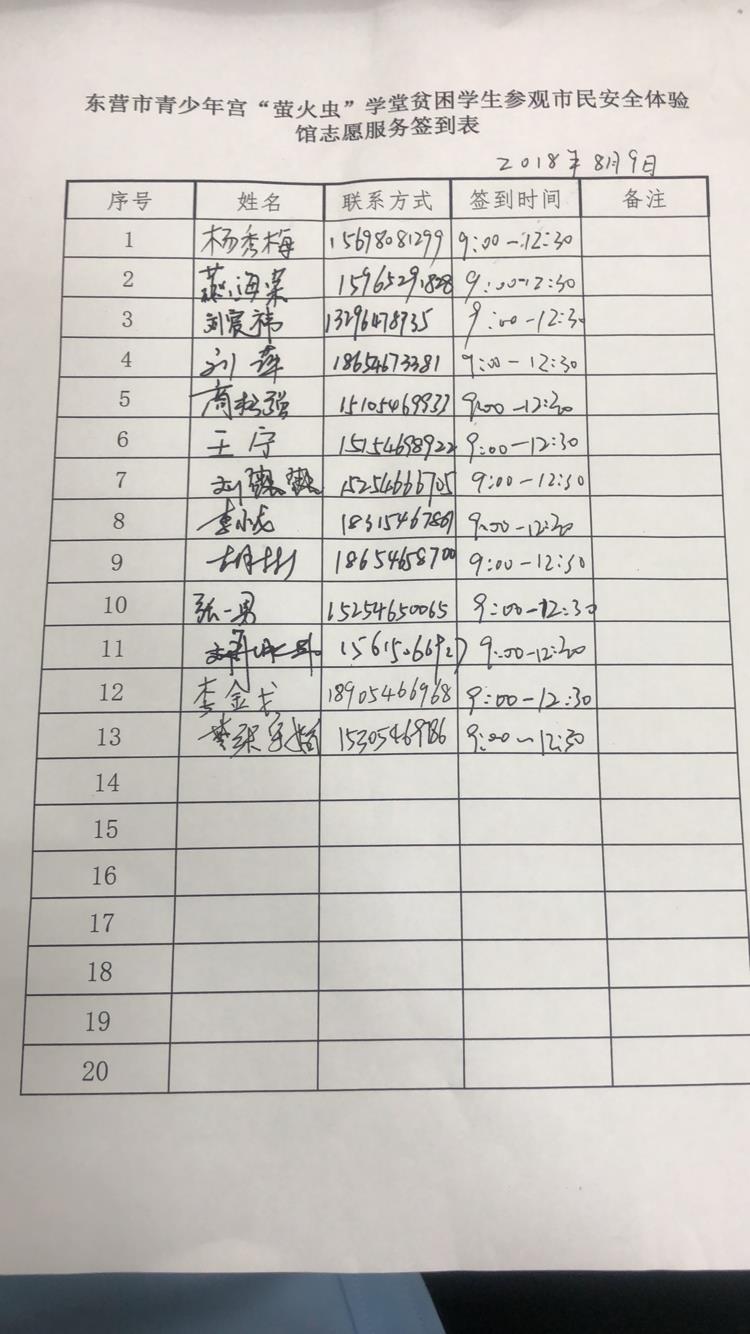 东营市青少年宫“萤火虫”学堂贫困学生参观市民安全体验
馆志愿服务签到表
2018年8月9日
序号 姓名 联系方式 签到时间 备注
1 杨秀梅 15698081299 9:00-12:30
2 15965291828 9:00-12:30
3 刘宸祎 13296478935 9:00-12:30
4 刘萍 18654673381 9:00-12:30
5 商松强 15105469933 9:00-12:30
6 王宁 15154698922 9:00-12:30
7 刘 15254666705 9:00-12:30
8 李小龙 18315467869 9:00-12:30
9 胡彬 18654658700 9:00-12:30
10 张一男 15254650065 9:00-12:30
11 9:00-12:30
12 李金戈 18905466968 9:00-12:30
13 15305469786 9:00-12:30
14
15
16
17
18
19
20